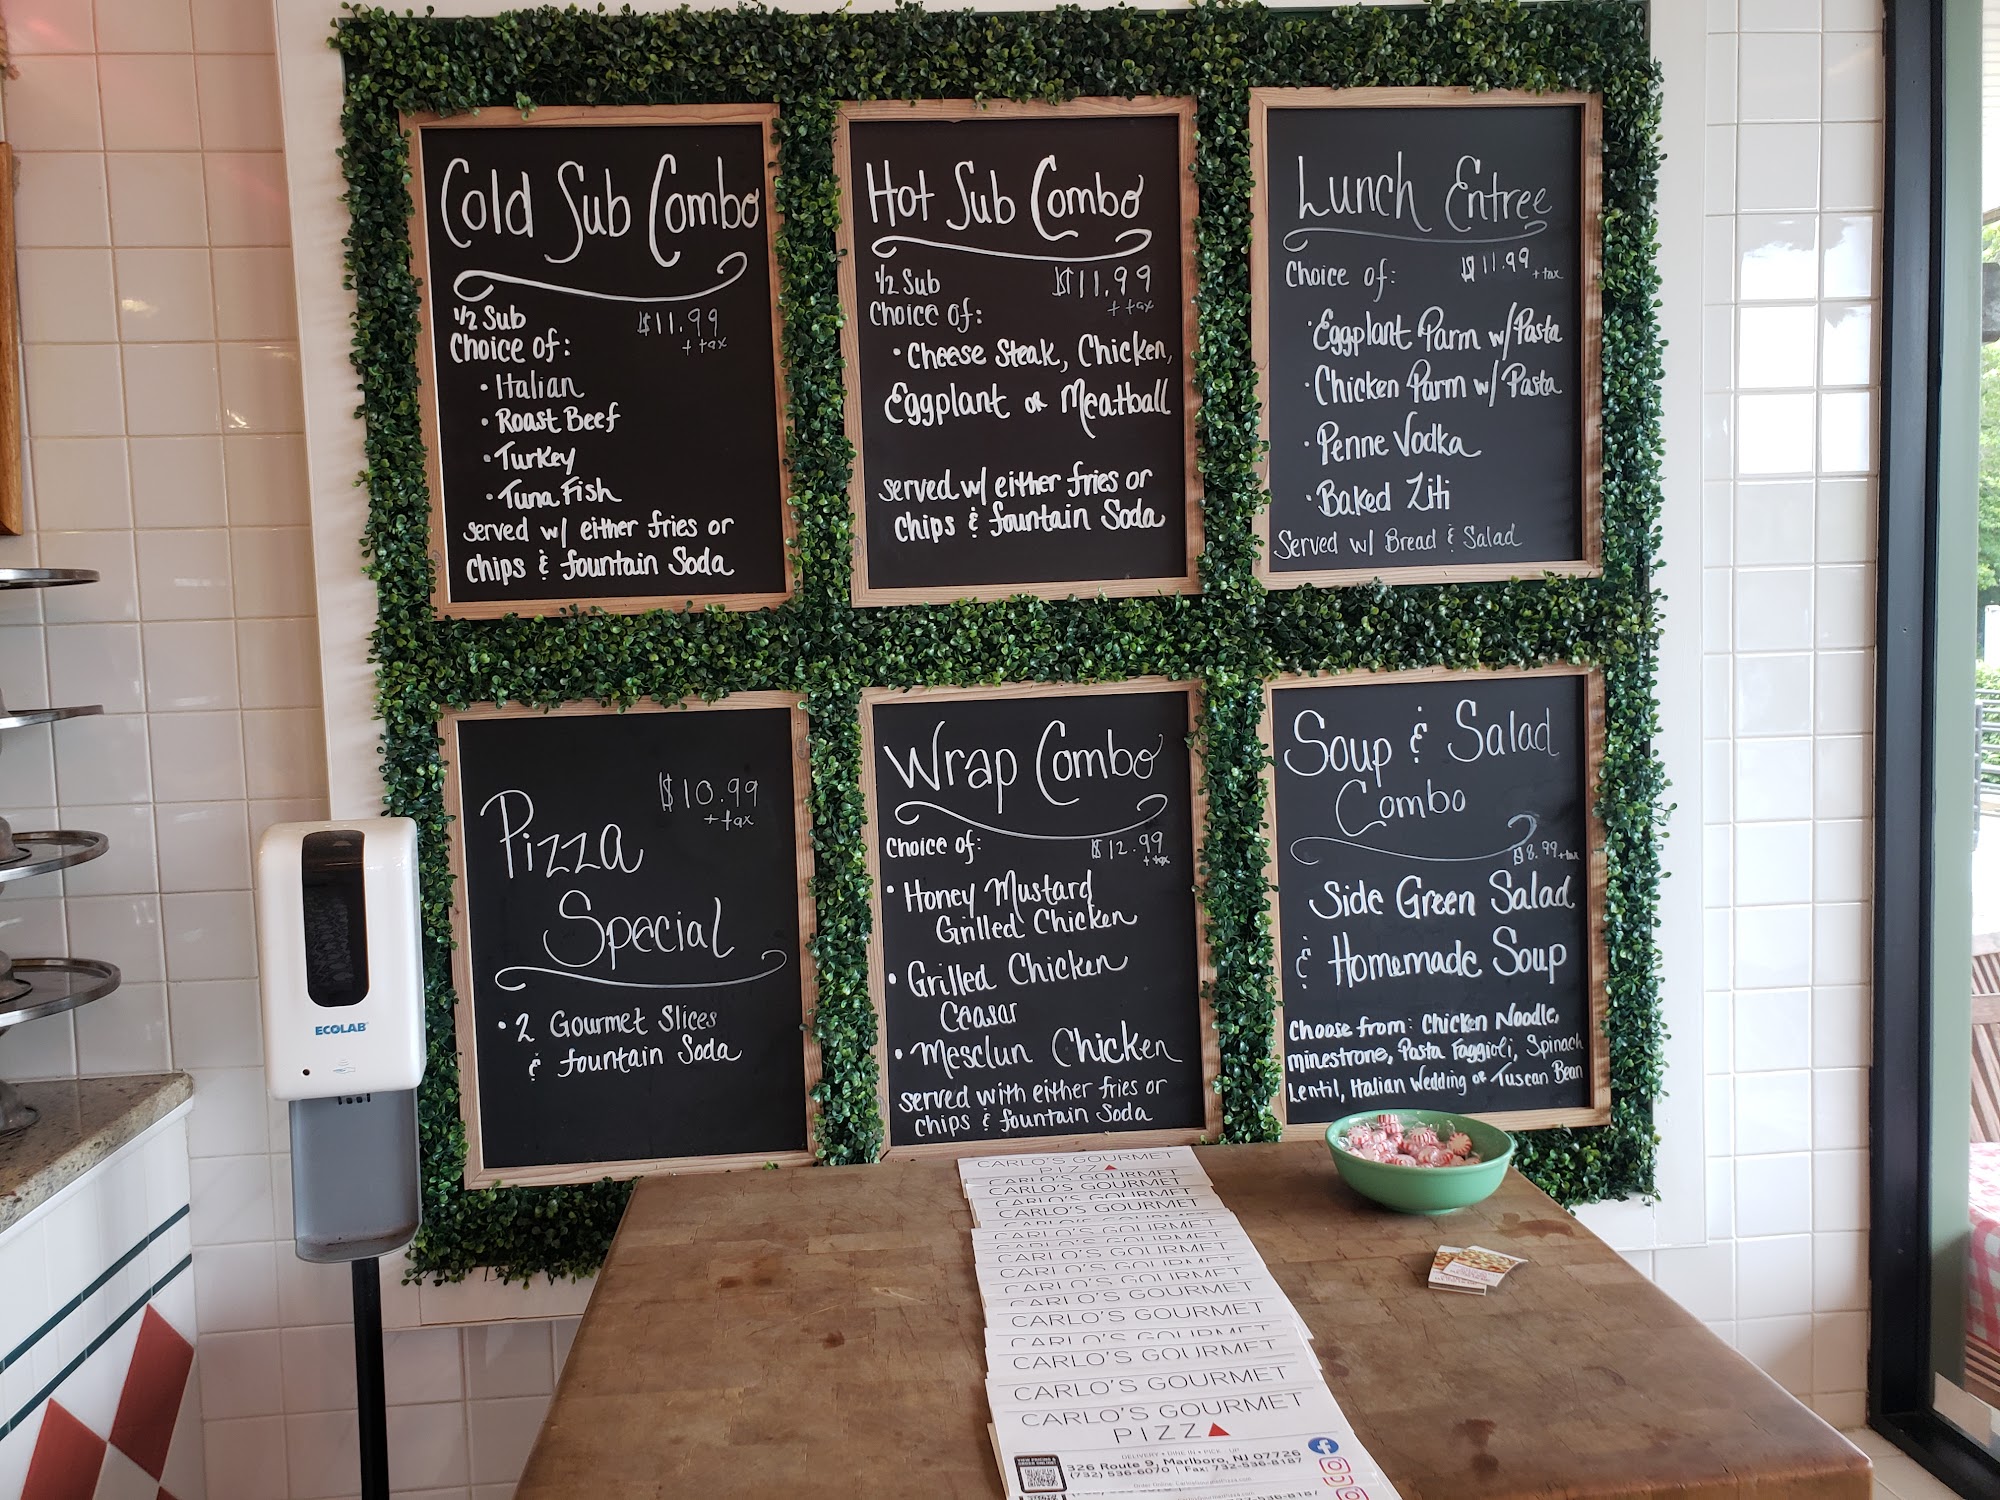 Cold Sub Combo
1/2 Sub
$11.99
+ tax
Choice of:
• Italian
• Roast Beef
• Turkey
• Tuna Fish
served w/ either fries or
chips & fountain Soda
Hot Sub Combo
1/2 Sub
$11.99
+ tax
Choice of:
• Cheese Steak, Chicken,
Eggplant or Meatball
served w/ either fries or
chips & fountain Soda
Lunch Entree
Choice of:
$11.99 + tax
• Eggplant Parm w/ Pasta
• Chicken Parm w/ Pasta
• Penne Vodka
• Baked Ziti
Served w/ Bread & Salad
$10.99
+ tax
Pizza
Special
• 2 Gourmet Slices
& fountain Soda
Wrap Combo
Choice of:
$12.99
+ tax
• Honey Mustard
Grilled Chicken
• Grilled Chicken
Ceasar
• Mesclun Chicken
served with either fries or
chips & fountain Soda
Soup & Salad
Combo
$8.99 + tax
Side Green Salad
& Homemade Soup
Choose from: Chicken Noodle,
minestrone, Pasta Faggioli, Spinach
Lentil, Italian Wedding or Tuscan Bean
ECOLAB
CARLO'S GOURMET
PIZZA
CARLO'S GOURMET
CARLO'S GOURMET
CARLO'S GOURMET
CARLO'S GOURMET
CARLO'S GOURMET
CARLO'S GOURMET
CARLO'S GOURMET
CARLO'S GOURMET
CARLO'S GOURMET
CARLO'S GOURMET
CARLO'S GOURMET
CARLO'S GOURMET
PIZZA
DELIVERY • DINE IN • PICK-UP
326 Route 9, Marlboro, NJ 07726
(732) 536-6070 | Fax: 732-536-8187